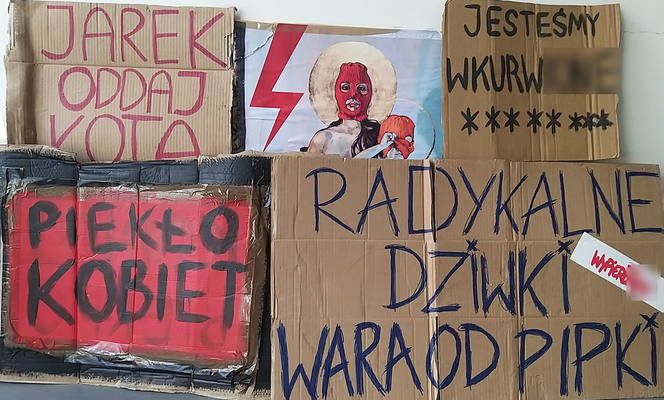 JAREK
ODDAJ
KOTA
JESTEŚMY
WKURW
***** ***
PIEKŁO
KOBIET
RADYKALNE
DZIWKI
WYPIER
WARA OD PIPKI